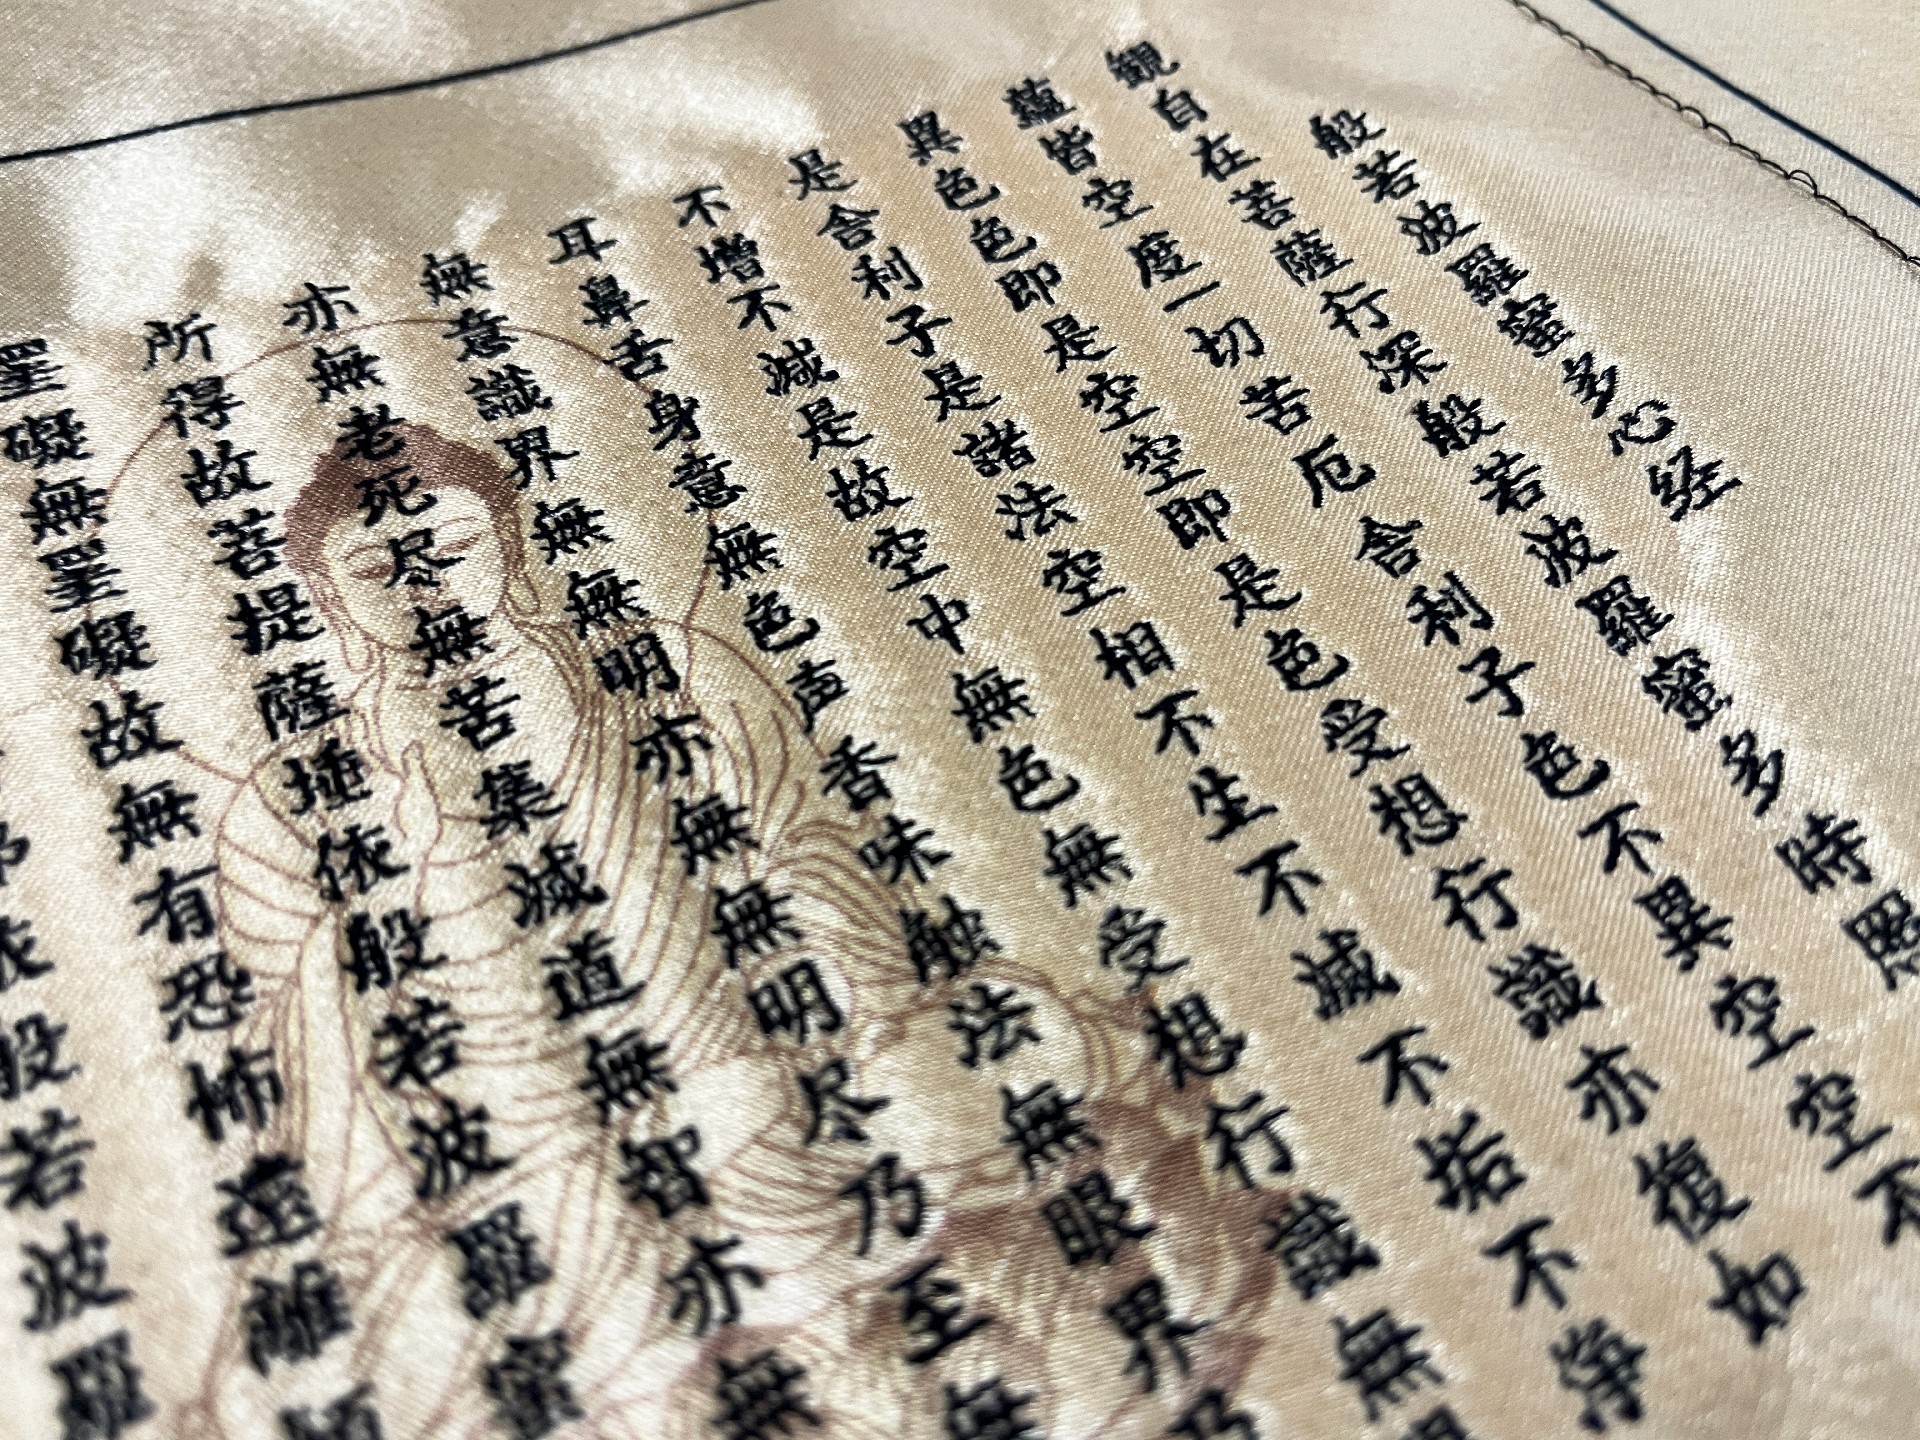 般若波羅蜜多心経
観自在菩薩行深般若波羅蜜多時
蘊皆空度一切苦厄舎利子色不異空空不
異色色即是空空即是色受想行識亦復如
是舎利子是諸法空相不生不滅不垢不浄
不増不減是故空中無色無受想行識無
耳鼻舌身意無色声香味触法無眼界乃
無意識界無無明亦無無明尽乃至無
亦無老死尽無苦集滅道無智亦無
所得故菩提薩埵依般若波羅蜜
罣礙無罣礙故無有恐怖遠離
般若波羅